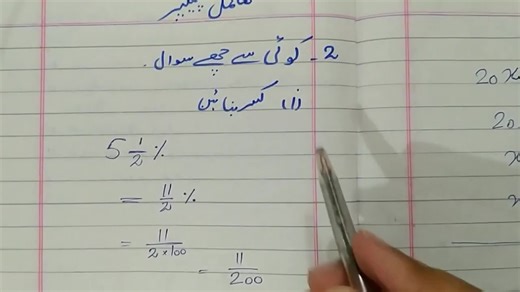 مکمل پیپر
2۔ کوئی سے چھے سوال۔
(i) کسر بنائیں
5 1/2 %
= 11/2 %
= 11/2×100
= 11/200
20 x
20
x
x